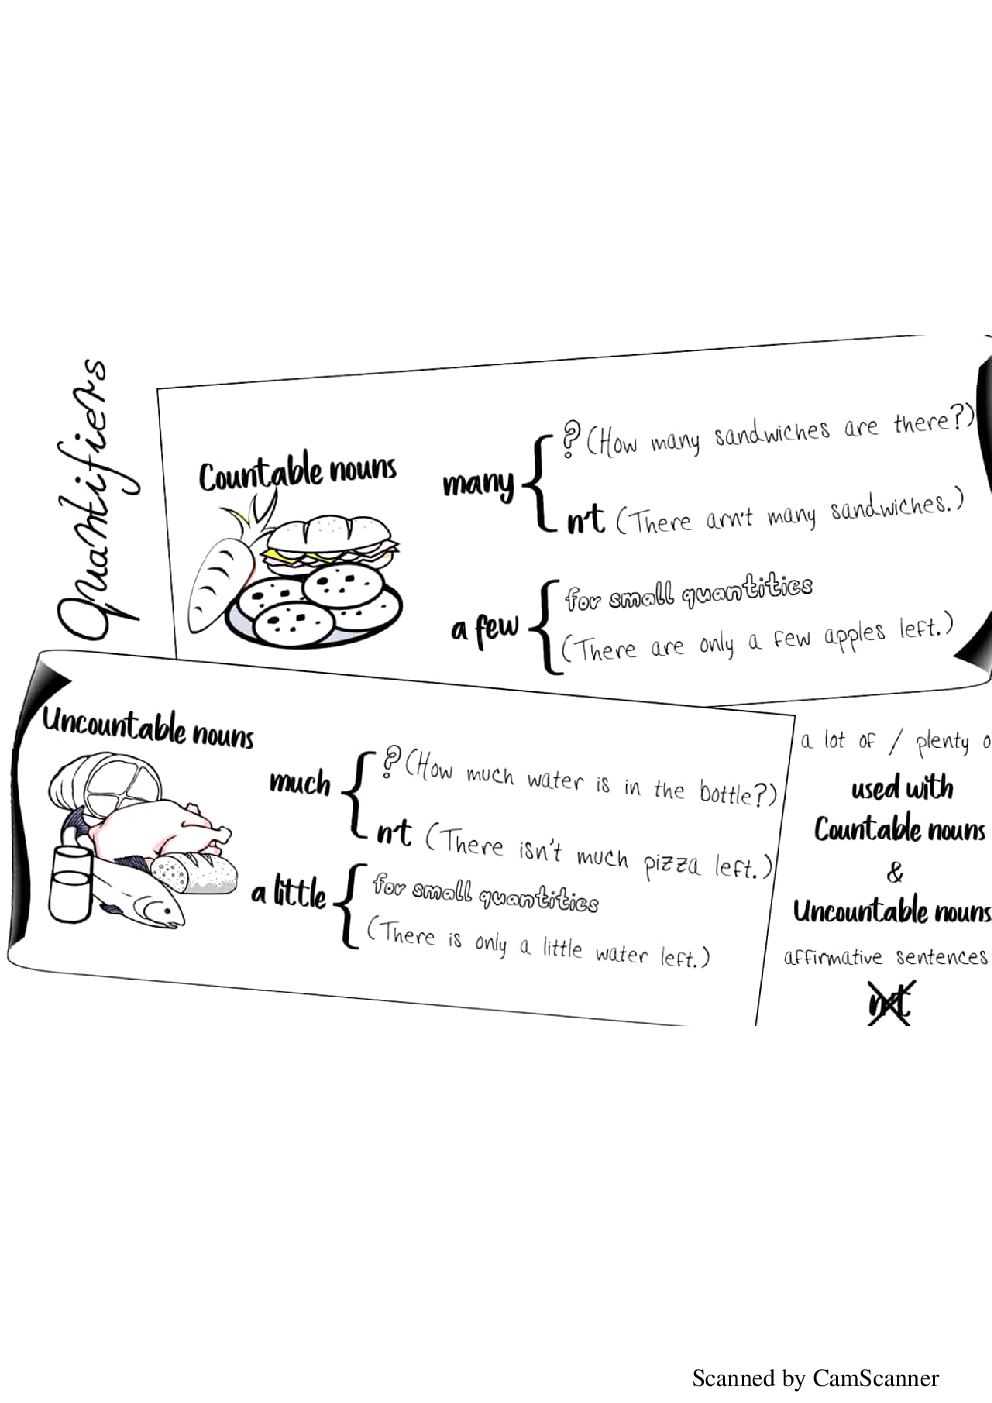 Quantifiers
Countable nouns
many
? (How many sandwiches are there?)
n't (There arn't many sandwiches.)
a few
for small quantities
(There are only a few apples left.)
Uncountable nouns
much
? (How much water is in the bottle?)
n't (There isn't much pizza left.)
a little
for small quantities
(There is only a little water left.)
a lot of / plenty o
used with
Countable nouns
&
Uncountable nouns
affirmative sentences
n't
Scanned by CamScanner